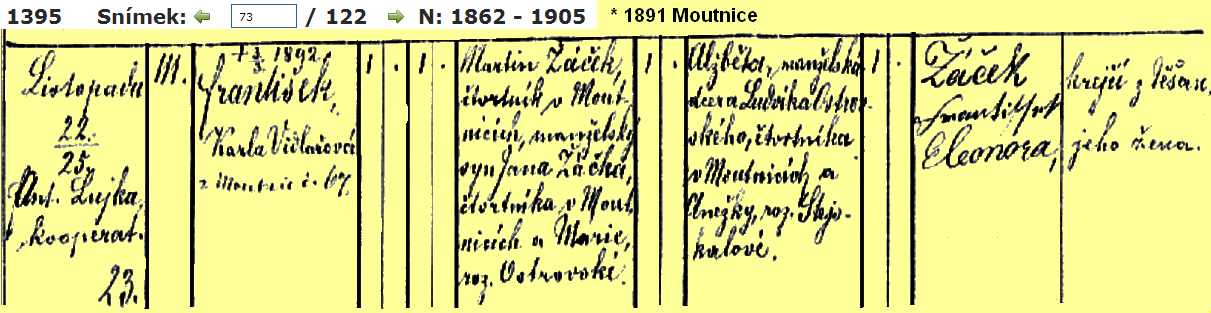 1395 Snímek: 73 / 122 N: 1862 - 1905 * 1891 Moutnice
Listopadu
22.
25.
Ant. Lujka,
kooperat.
23.
111.
† 1892
František,
Karla Vidlářová
z Moutnic č. 67.
1 . 1 .
Martin Žáček,
čtvrtník v Mout-
nicích, manželský
syn Jana Žáčka,
čtvrtníka v Mout-
nicích a Marie,
roz. Ostrovské.
1 .
Alžběta, manželská
dcera Ludvíka Ostrov-
ského, čtvrtníka
v Moutnicích a
Anežky, roz. Stejs-
kalové.
1 .
Žáček
František
Eleonora,
krejčí z Těšan,
jeho žena.